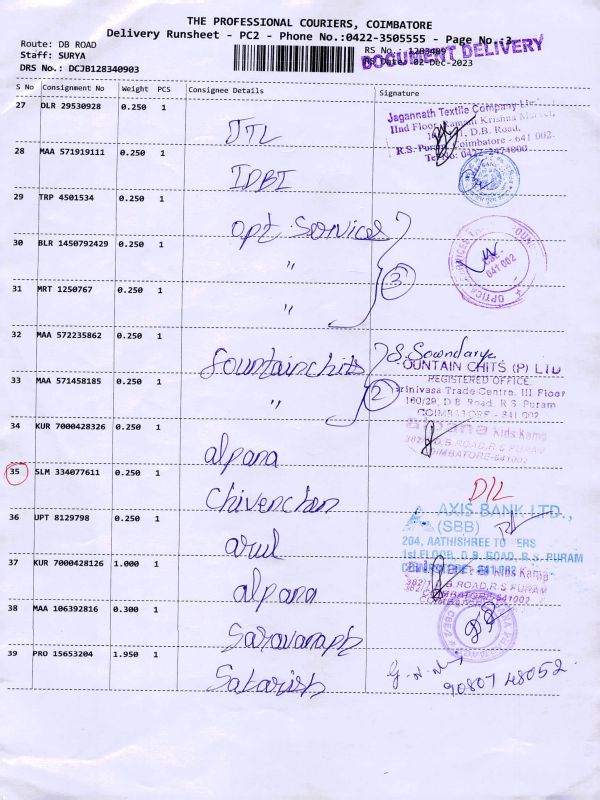 THE PROFESSIONAL COURIERS, COIMBATORE
Delivery Runsheet - PC2 - Phone No.:0422-3505555 - Page No.:3
Route: DB ROAD
Staff: SURYA
DRS No.: DCJB128340903
RS No.: 1283409
Date: 02-Dec-2023
DOCUMENT DELIVERY
S No Consignment No Weight PCS Consignee Details Signature
27 DLR 29530928 0.250 1
JTL
Jagannath Textile Company
IInd Floor, Ramani Krishna
D.B. Road,
R.S. Puram, Coimbatore - 641 002
Tel No: 0422-2474800
28 MAA 571919111 0.250 1
IDBI
29 TRP 4501534 0.250 1
opt. Services
30 BLR 1450792429 0.250 1
"
3
641 002
31 MRT 1250767 0.250 1
"
32 MAA 572235862 0.250 1
fountainchits
S. Soundarya
FOUNTAIN CHITS (P) LTD
REGISTERED OFFICE
Srinivasa Trade Centre, III Floor
160/29, D.B. Road, R.S. Puram
COIMBATORE - 641 002
33 MAA 571458185 0.250 1
"
2
34 KUR 7000428326 0.250 1
alpana
alpana Kids Kamp
382/1, D.B.ROAD,R.S PURAM
COIMBATORE-641002
35 SLM 334077611 0.250 1
Chivenchan
D/L
36 UPT 8129798 0.250 1
arul
AXIS BANK LTD.,
(SBB)
204, AATHISHREE TOWERS
1st FLOOR, D.B. ROAD, R.S. PURAM
COIMBATORE - 641 002
37 KUR 7000428126 1.000 1
alpana
Kids Kamp
382/1, D.B.ROAD,R.S PURAM
COIMBATORE-641002
38 MAA 106392816 0.300 1
39 PRO 15653204 1.950 1
90807 48052